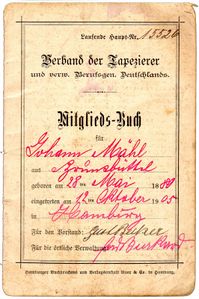 Laufende Haupt-Nr. 15526
Verband der Tapezierer
und verw. Berufsgen. Deutschlands.
Mitglieds-Buch
für
Johann Mähl
aus Brunsbüttel
geboren am 28ten Mai 1880
eingetreten am 22 Oktober 1905
in Hamburg
Für den Vorstand:
Für die örtliche Verwaltung:
Hamburger Buchdruckerei und Verlagsanstalt Auer & Co. in Hamburg.